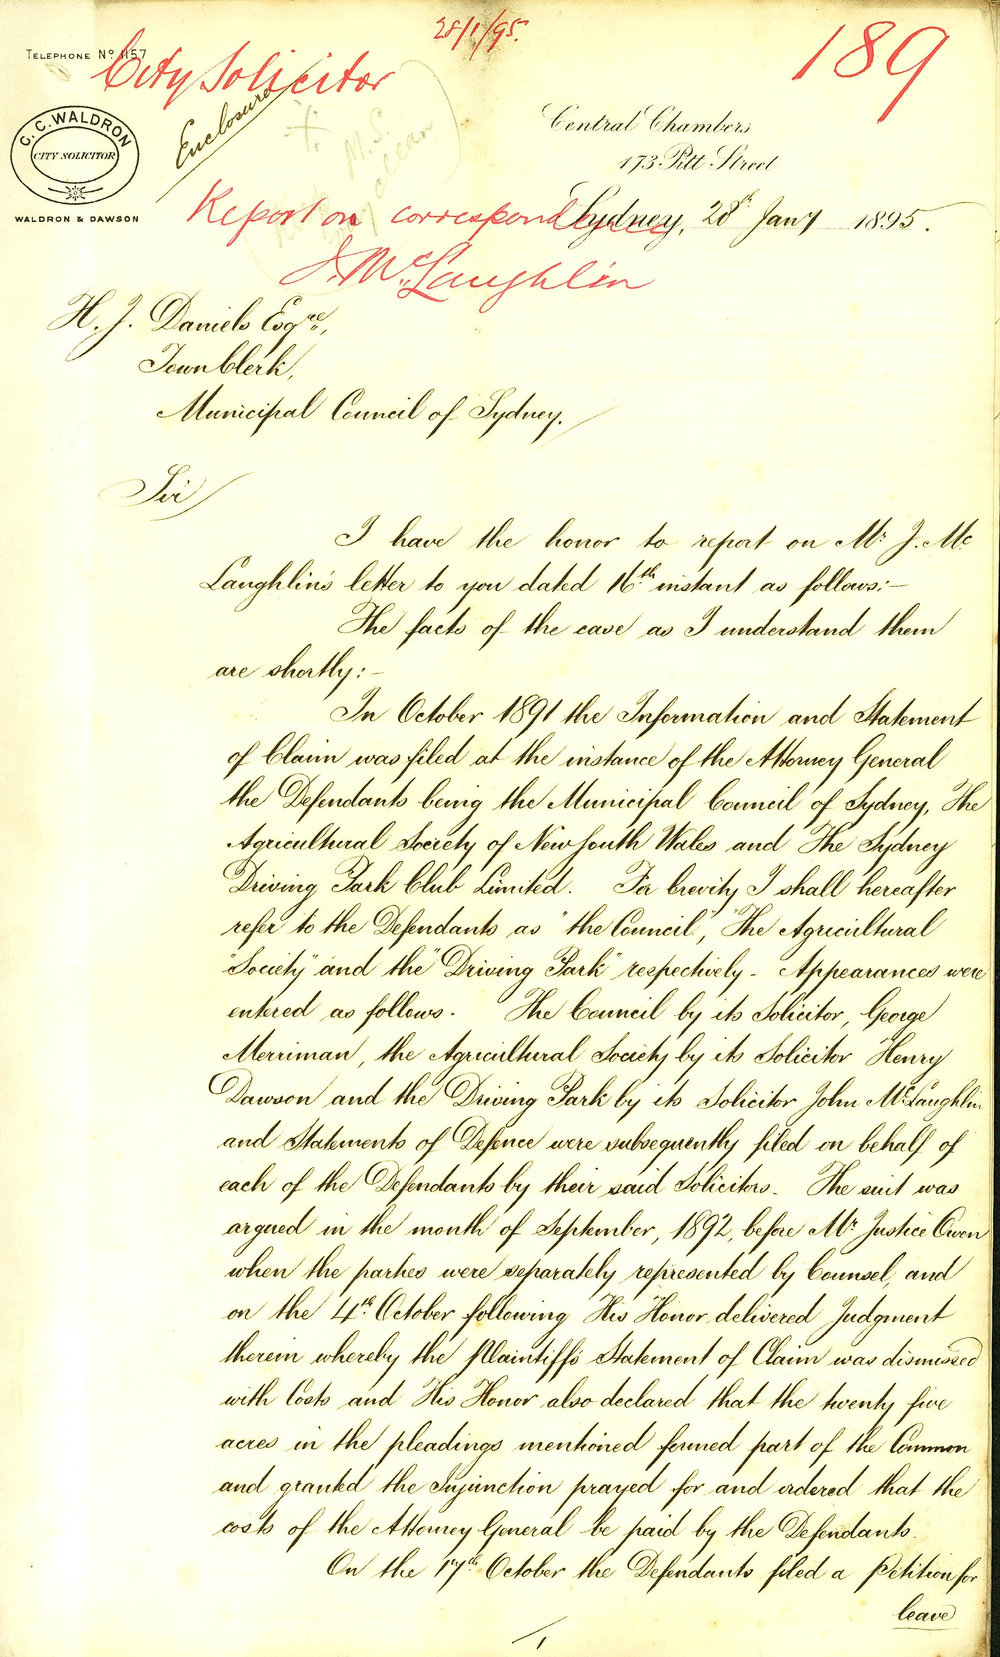 28/1/95.
189
TELEPHONE No. 1157
City Solicitor
Enclosure
C. C. WALDRON
CITY SOLICITOR
WALDRON & DAWSON
Central Chambers
173 Pitt Street
Report on correspondence
Sydney, 28th Jany 1895.
J. McLaughlin
H. J. Daniels Esqre,
Town Clerk,
Municipal Council of Sydney.
Sir
I have the honor to report on Mr J. Mc
Laughlin's letter to you dated 16th instant as follows:-
The facts of the case as I understand them
are shortly:-
In October 1891 the Information and Statement
of Claim was filed at the instance of the Attorney General
the Defendants being the Municipal Council of Sydney, The
Agricultural Society of New South Wales and The Sydney
Driving Park Club Limited. For brevity I shall hereafter
refer to the Defendants as "the Council", "The Agricultural
"Society" and the "Driving Park" respectively - Appearances were
entered as follows. The Council by its Solicitor, George
Merriman, the Agricultural Society by its Solicitor Henry
Dawson and the Driving Park by its Solicitor John McLaughlin
and Statements of Defence were subsequently filed on behalf of
each of the Defendants by their said Solicitors. The suit was
argued in the month of September, 1892, before Mr Justice Owen
when the parties were separately represented by Counsel, and
on the 4th October following His Honor delivered Judgment
therein whereby the Plaintiff's Statement of Claim was dismissed
with Costs and His Honor also declared that the twenty five
acres in the pleadings mentioned formed part of the Common
and granted the Injunction prayed for and ordered that the
costs of the Attorney General be paid by the Defendants.
On the 17th October the Defendants filed a Petition for
leave
1